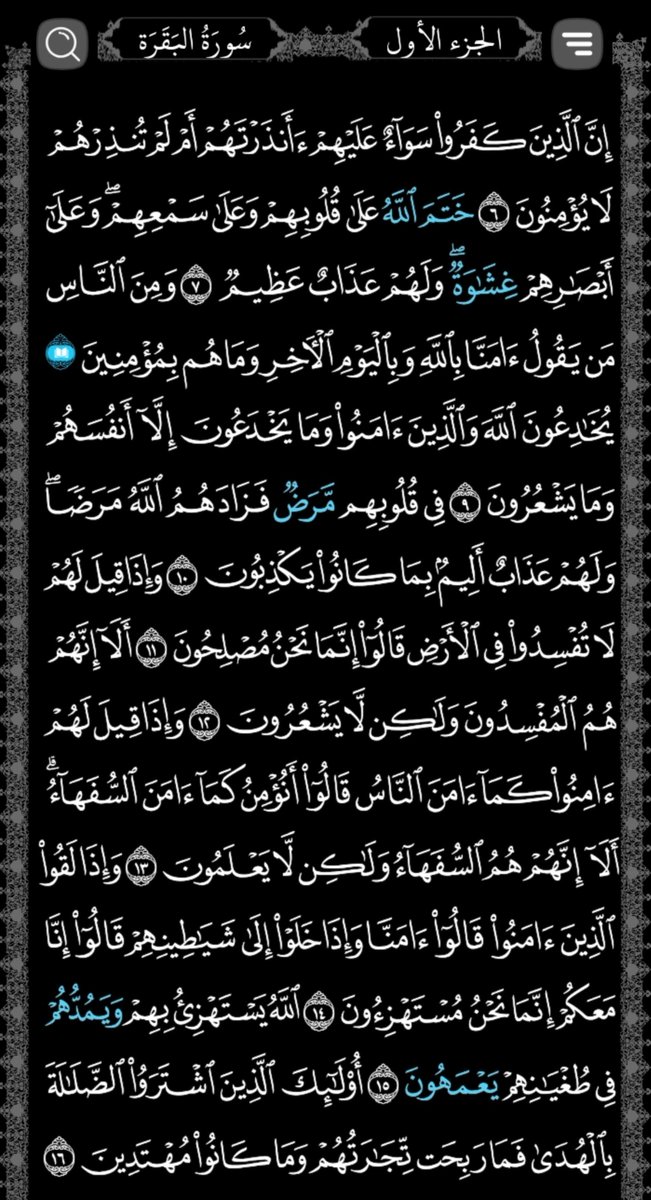 الجزء الأول
سُورَةُ البَقَرَة
إِنَّ ٱلَّذِينَ كَفَرُوا۟ سَوَآءٌ عَلَيْهِمْ ءَأَنذَرْتَهُمْ أَمْ لَمْ تُنذِرْهُمْ
لَا يُؤْمِنُونَ ٦ خَتَمَ ٱللَّهُ عَلَىٰ قُلُوبِهِمْ وَعَلَىٰ سَمْعِهِمْ ۖ وَعَلَىٰٓ
أَبْصَـٰرِهِمْ غِشَـٰوَةٌ ۖ وَلَهُمْ عَذَابٌ عَظِيمٌ ٧ وَمِنَ ٱلنَّاسِ
مَن يَقُولُ ءَامَنَّا بِٱللَّهِ وَبِٱلْيَوْمِ ٱلْـَٔاخِرِ وَمَا هُم بِمُؤْمِنِينَ
يُخَـٰدِعُونَ ٱللَّهَ وَٱلَّذِينَ ءَامَنُوا۟ وَمَا يَخْدَعُونَ إِلَّآ أَنفُسَهُمْ
وَمَا يَشْعُرُونَ ٩ فِى قُلُوبِهِم مَّرَضٌ فَزَادَهُمُ ٱللَّهُ مَرَضًا ۖ
وَلَهُمْ عَذَابٌ أَلِيمٌۢ بِمَا كَانُوا۟ يَكْذِبُونَ ١٠ وَإِذَا قِيلَ لَهُمْ
لَا تُفْسِدُوا۟ فِى ٱلْأَرْضِ قَالُوٓا۟ إِنَّمَا نَحْنُ مُصْلِحُونَ ١١ أَلَآ إِنَّهُمْ
هُمُ ٱلْمُفْسِدُونَ وَلَـٰكِن لَّا يَشْعُرُونَ ١٢ وَإِذَا قِيلَ لَهُمْ
ءَامِنُوا۟ كَمَآ ءَامَنَ ٱلنَّاسُ قَالُوٓا۟ أَنُؤْمِنُ كَمَآ ءَامَنَ ٱلسُّفَهَآءُ ۗ
أَلَآ إِنَّهُمْ هُمُ ٱلسُّفَهَآءُ وَلَـٰكِن لَّا يَعْلَمُونَ ١٣ وَإِذَا لَقُوا۟
ٱلَّذِينَ ءَامَنُوا۟ قَالُوٓا۟ ءَامَنَّا وَإِذَا خَلَوْا۟ إِلَىٰ شَيَـٰطِينِهِمْ قَالُوٓا۟ إِنَّا
مَعَكُمْ إِنَّمَا نَحْنُ مُسْتَهْزِءُونَ ١٤ ٱللَّهُ يَسْتَهْزِئُ بِهِمْ وَيَمُدُّهُمْ
فِى طُغْيَـٰنِهِمْ يَعْمَهُونَ ١٥ أُو۟لَـٰٓئِكَ ٱلَّذِينَ ٱشْتَرَوُا۟ ٱلضَّلَـٰلَةَ
بِٱلْهُدَىٰ فَمَا رَبِحَت تِّجَـٰرَتُهُمْ وَمَا كَانُوا۟ مُهْتَدِينَ ١٦